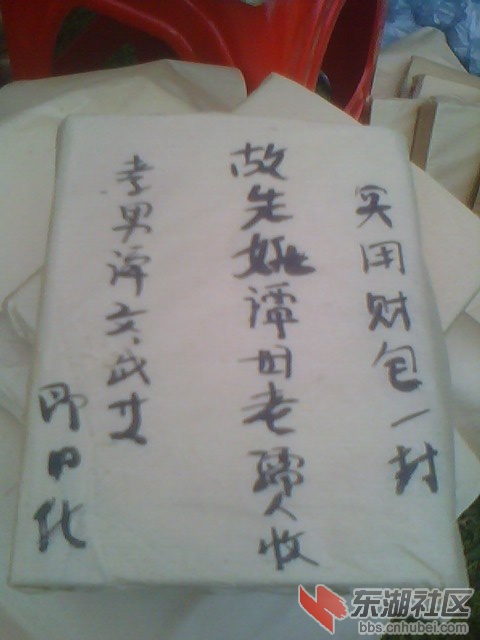 实用财包一封
故先妣谭母老孺人收
孝男谭文、武艾
即日化
东湖社区
bbs.cnhubei.com